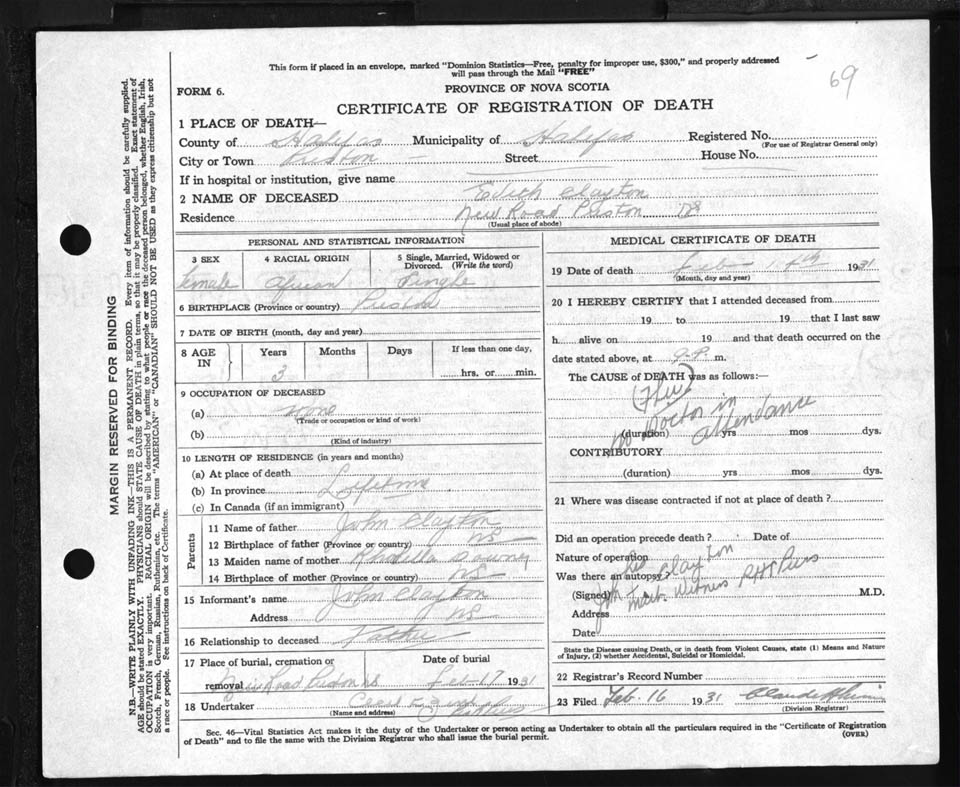 This form if placed in an envelope, marked "Dominion Statistics—Free, penalty for improper use, $300," and properly addressed
will pass through the Mail "FREE"
69
FORM 6.
PROVINCE OF NOVA SCOTIA
CERTIFICATE OF REGISTRATION OF DEATH
1 PLACE OF DEATH—
County of Halifax Municipality of Halifax Registered No.
(For use of Registrar General only)
City or Town Preston Street House No.
If in hospital or institution, give name
2 NAME OF DECEASED Edith Clayton
Residence New Road Preston NS
(Usual place of abode)
PERSONAL AND STATISTICAL INFORMATION
3 SEX 4 RACIAL ORIGIN 5 Single, Married, Widowed or
Divorced. (Write the word)
female African Single
6 BIRTHPLACE (Province or country) Preston
7 DATE OF BIRTH (month, day and year)
8 AGE IN Years Months Days If less than one day,
3 hrs. or min.
9 OCCUPATION OF DECEASED
(a) none
(Trade or occupation or kind of work)
(b)
(Kind of industry)
10 LENGTH OF RESIDENCE (in years and months)
(a) At place of death
(b) In province Lifetime
(c) In Canada (if an immigrant)
Parents
11 Name of father John Clayton
12 Birthplace of father (Province or country) NS
13 Maiden name of mother Downey
14 Birthplace of mother (Province or country) NS
15 Informant's name John Clayton
Address NS
16 Relationship to deceased Father
17 Place of burial, cremation or Date of burial
removal New Road Preston NS Feb 17 1931
18 Undertaker
(Name and address)
MEDICAL CERTIFICATE OF DEATH
19 Date of death 1931
(Month, day and year)
20 I HEREBY CERTIFY that I attended deceased from
19 to 19 that I last saw
h alive on 19 and that death occurred on the
date stated above, at 9 P. m.
The CAUSE of DEATH was as follows:—
(Flu)
No Doctor in
attendance
(duration) yrs mos dys.
CONTRIBUTORY
(duration) yrs mos dys.
21 Where was disease contracted if not at place of death?
Did an operation precede death? Date of
Nature of operation
Was there an autopsy?
(Signed) John Clayton M.D.
his
mark witness
Address
Date
State the Disease causing Death, or in death from Violent Causes, state (1) Means and Nature
of Injury, (2) whether Accidental, Suicidal or Homicidal.
22 Registrar's Record Number
23 Filed Feb. 16 1931
(Division Registrar)
Sec. 46—Vital Statistics Act makes it the duty of the Undertaker or person acting as Undertaker to obtain all the particulars required in the "Certificate of Registration
of Death" and to file the same with the Division Registrar who shall issue the burial permit. (OVER)
MARGIN RESERVED FOR BINDING
N.B.—WRITE PLAINLY WITH UNFADING INK—THIS IS A PERMANENT RECORD. Every item of information should be carefully supplied.
AGE should be stated EXACTLY. PHYSICIANS should STATE CAUSE OF DEATH in plain terms, so that it may be properly classified. Exact statement of
OCCUPATION is very important. RACIAL ORIGIN will be described by stating to what people or race the deceased person belonged, whether English, Irish,
Scotch, French, German, Russian, Ruthenian, etc. The terms "AMERICAN" or "CANADIAN" SHOULD NOT BE USED as they express citizenship but not
a race or people. See instructions on back of Certificate.